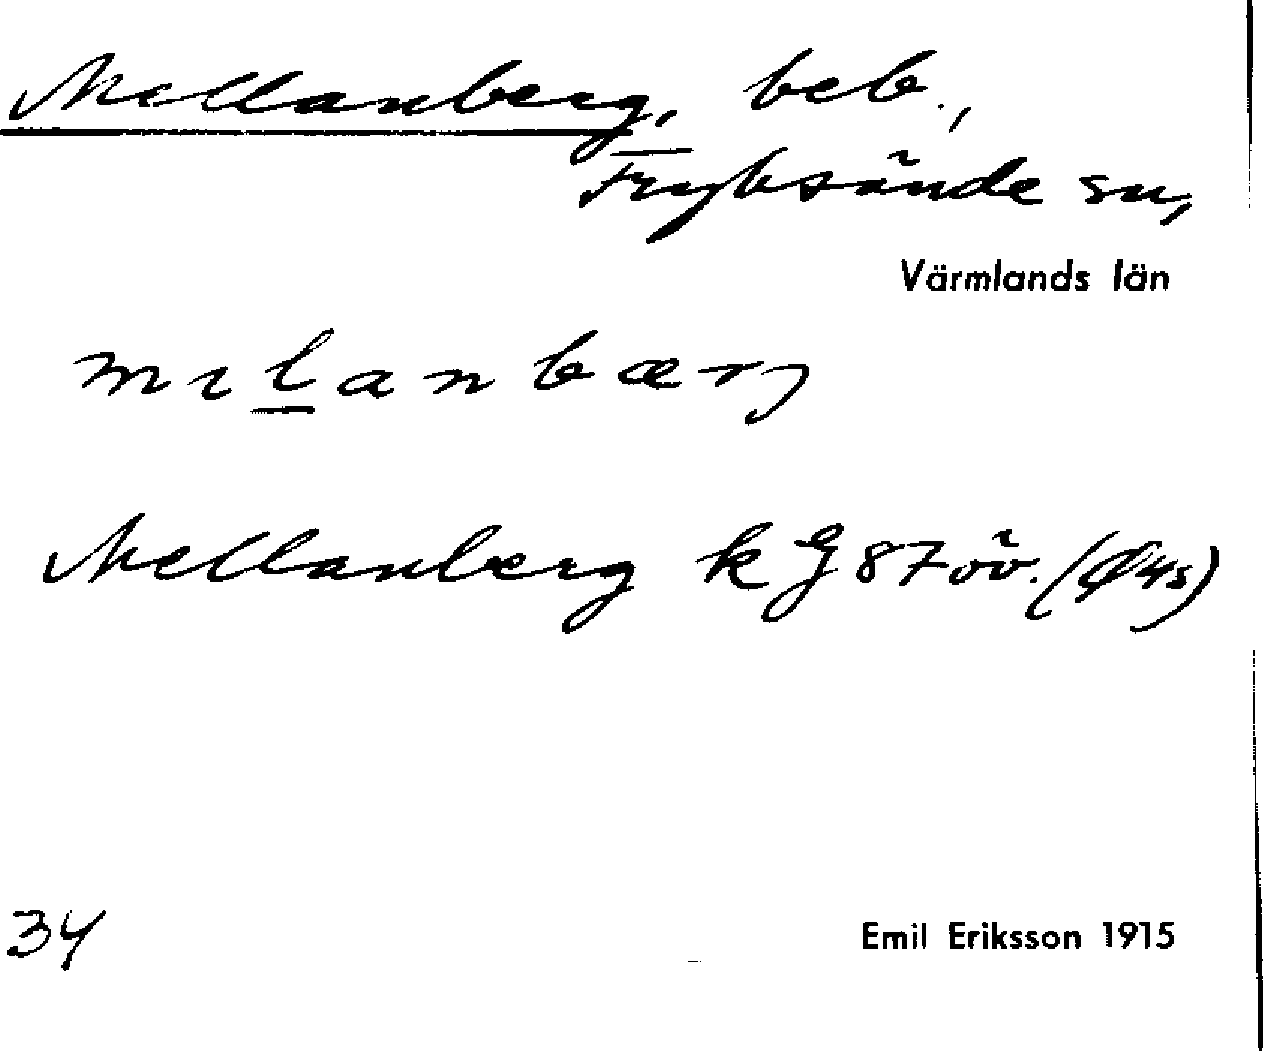 Mellanberg, beb.,
Fryksände sn,
Värmlands län
mɩlanbærj
Mellanberg k G 87 öv.
34
Emil Eriksson 1915